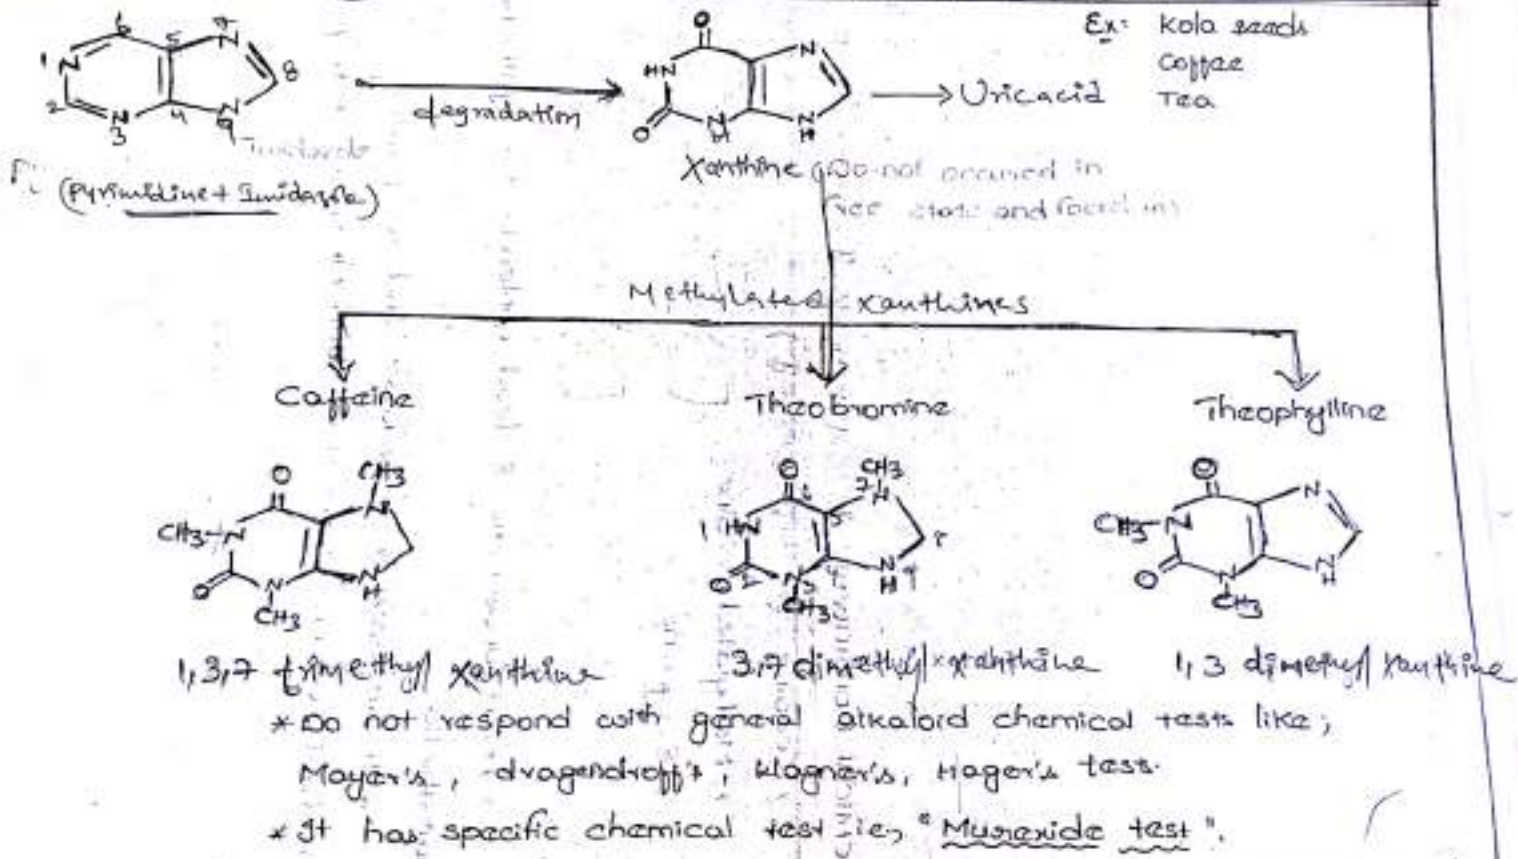 Ex: Kola seeds
Coffee
Tea
1 N 2 N 3 4 5 6 7 N 8 N 9
degradation
O HN O N H N N H
→ Uric acid
(Pyrimidine + Imidazole)
Xanthine
Do not occured in
free state and found in
Methylated xanthines
Caffeine
Theobromine
Theophylline
O CH3 CH3 N N O N CH3 N H
O CH3 1 HN 2 O N 3 CH3 4 5 6 7 N 8 N H 9
O CH3 N O N CH3 N N H
1,3,7 trimethyl xanthine
3,7 dimethyl xanthine
1,3 dimethyl xanthine
* Do not respond with general alkaloid chemical tests like;
Mayer's, dragendroff's, Wagner's, Hager's tess.
* It has specific chemical test ie, "Murexide test".